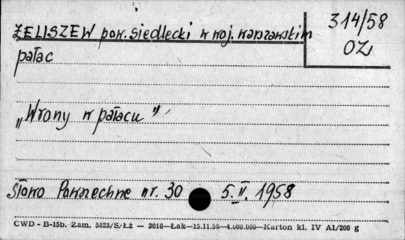 ŻELISZEW pow. siedlecki w woj. warszawskim
314/58
OZ
pałac
„Wrony w pałacu"
Słowo Powszechne nr. 30 5. II. 1958
CWD - B-15b. Zam. 5823/S/Łż — 2016—Łak—15.11.56—4.000.000—Karton kl. IV A1/200 g